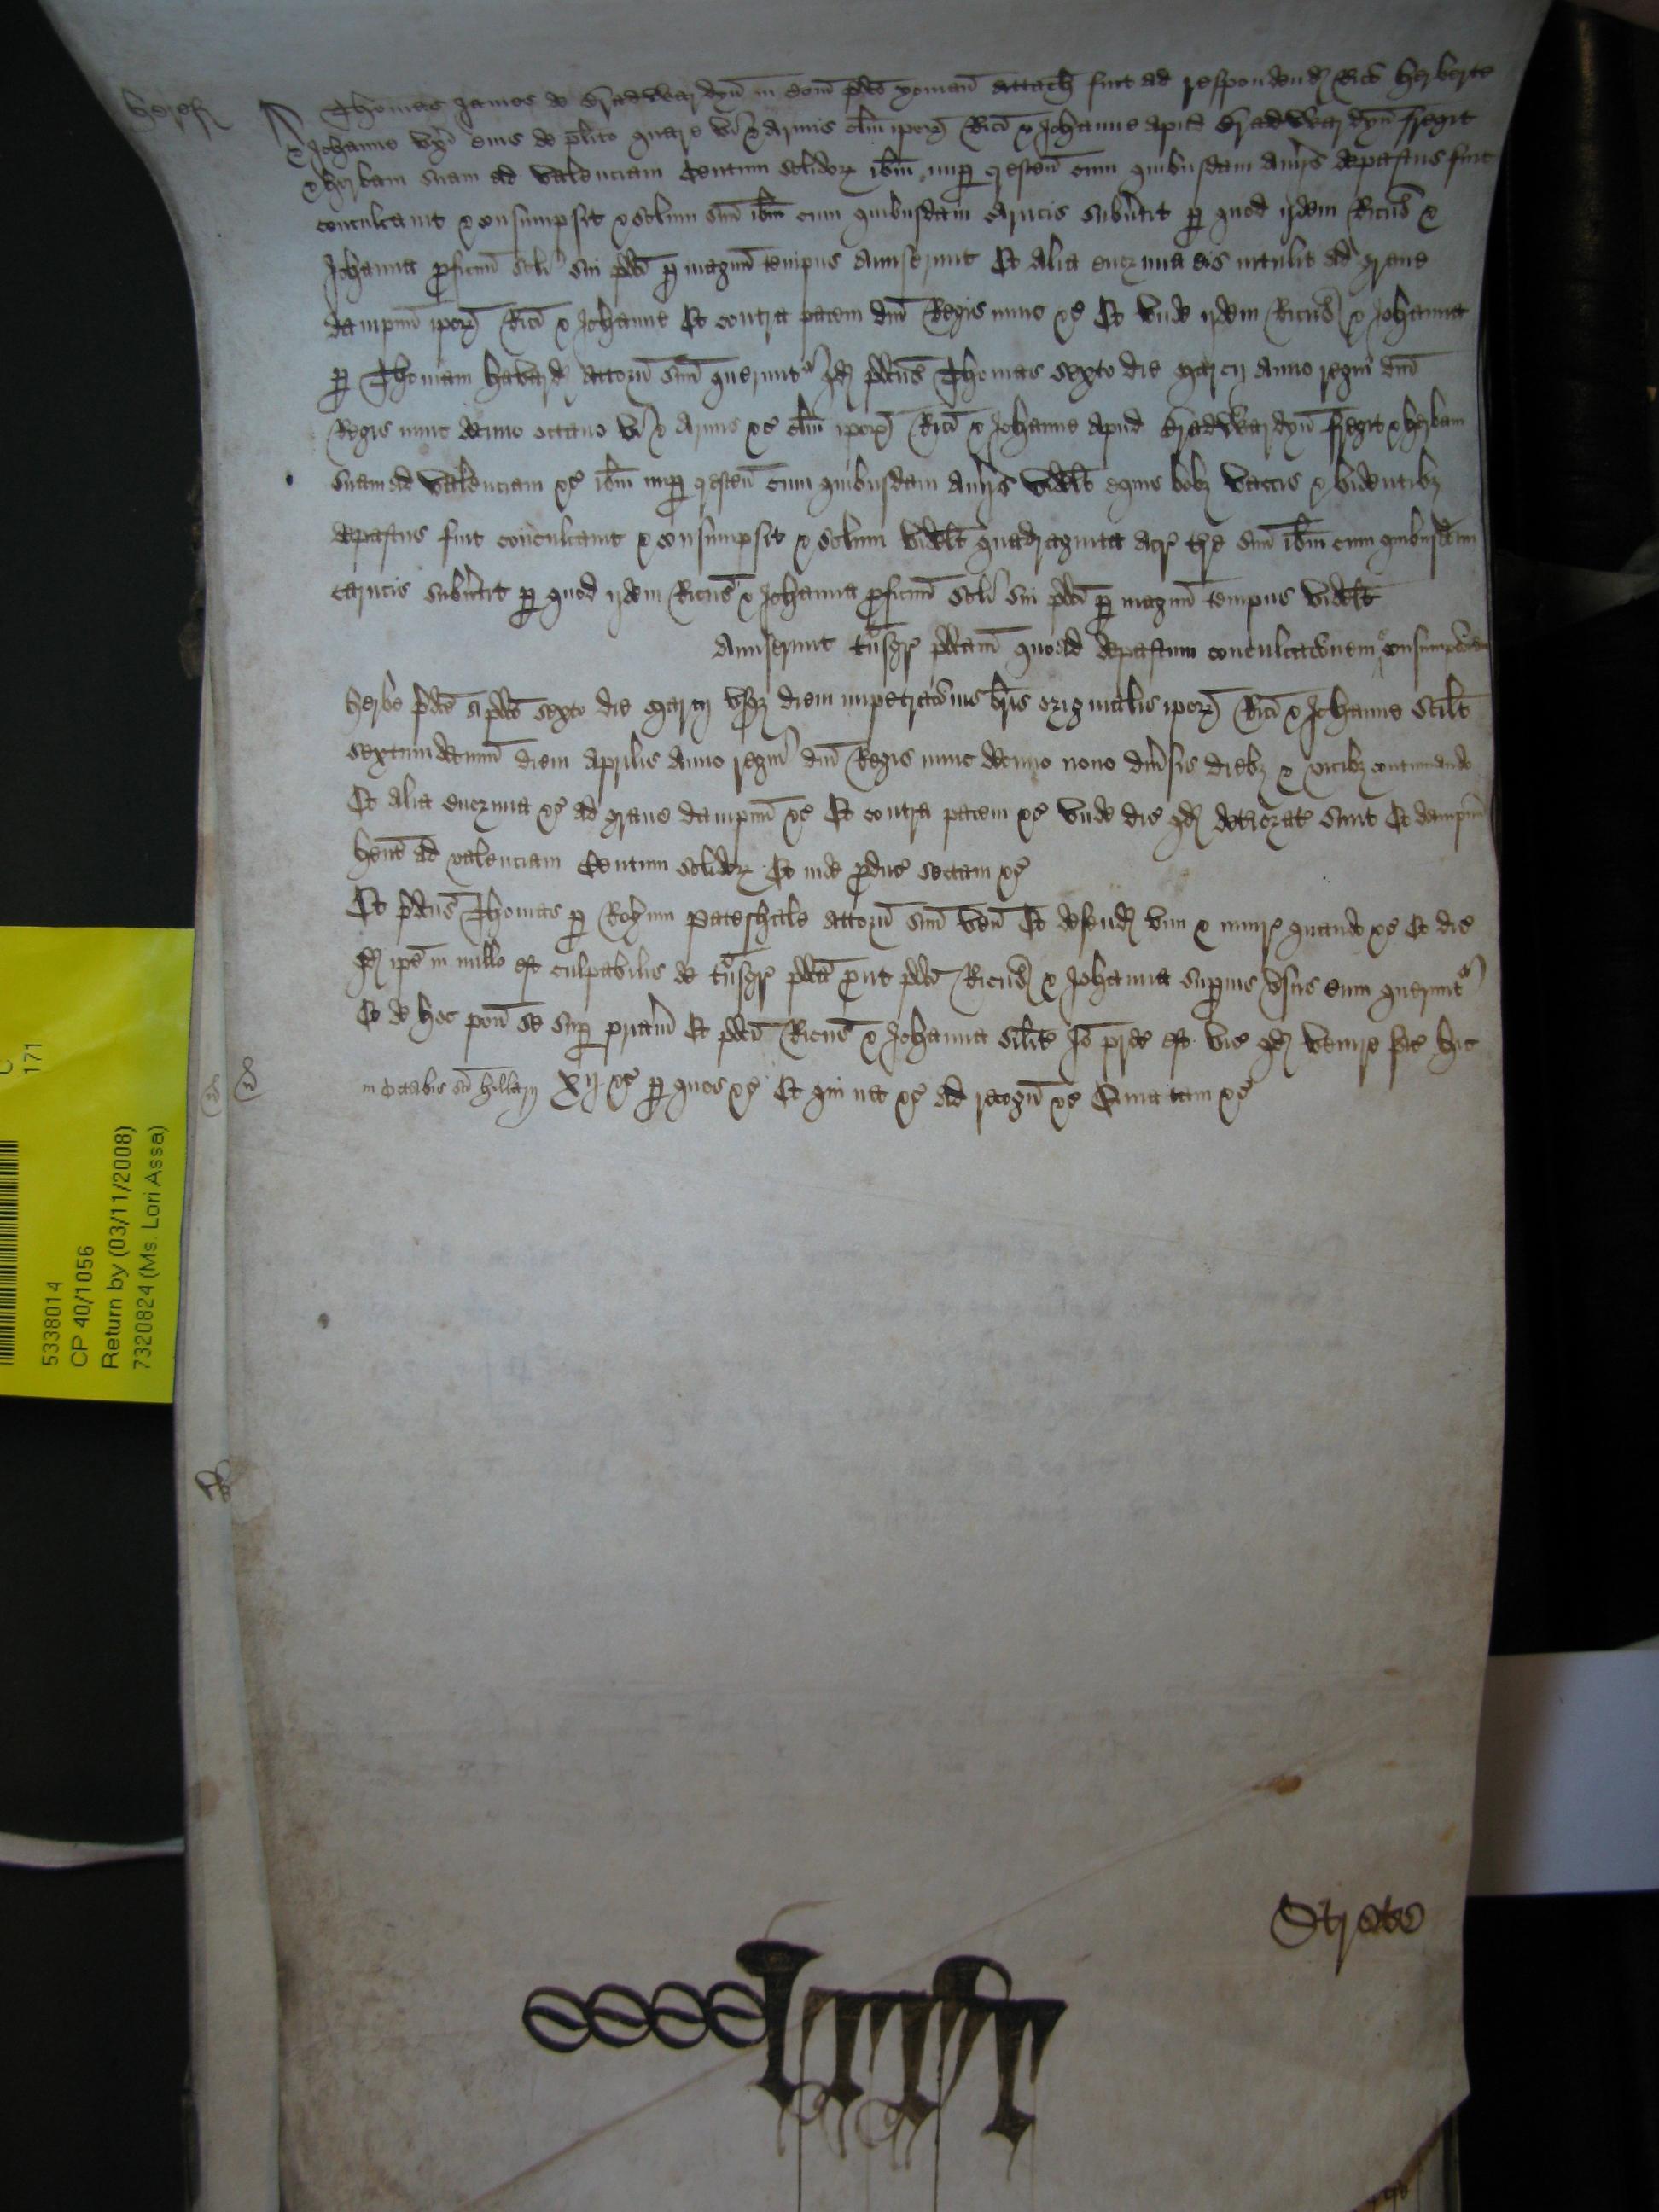 Heref
Thomas James de Bradwardyn in Com pdco yoman attach fuit ad respondend Rico Herberte
& Johanne uxi eius de plito quare vi & armis clm ipor Rici & Johanne apud Bradwardyn fregit
& herbam suam ad valenciam Centum solidor ibm nup crescen cum quibusdam aviis depastus fuit
conculcavit & consumpsit & solum suu ibm cum quibusdam carucis subvtit p quod ijdem Ricus &
Johanna pficuu soli sui pdci p magnu tempus amiserunt Et alia enormia eis intulit ad grave
dampnu ipor Rici & Johanne Et contra pacem dni Regis nunc &c Et unde ijdem Ricus & Johanna
p Thomam Havard attorn suu querunt qd pdcus Thomas sexto die Marcij anno regni dni
Regis nunc decimo octavo vi & armis &c clm ipor Rici & Johanne apud Bradwardyn fregit & herbam
suam ad valenciam &c ibm nup crescen cum quibusdam aviis videlt equis bobz vaccis & bidentibz
depastus fuit conculcavit & consumpsit & solum videlt quadraginta acr tre suu ibm cum quibusdam
carucis subvtit p quod ijdem Ricus & Johanna pficuu soli sui pdci p magnu tempus videlt
amiserunt tnsgr pdcam quoad depastum conculcacionem & consumpcoem
herbe pdce a pdco sexto die Marcij usqz diem impetracionis bris originalis ipor Rici & Johanne scilt
sextumdecimu diem Aprilis anno regni dni Regis nunc decimo nono divsis diebz & vicibz continuando
Et alia enormia &c ad grave dampnu &c Et contra pacem &c unde dic qd deteriorat sunt Et dampnu
hent ad valenciam Centum solidor Et inde pduc sectam &c
Et pdcus Thomas p Rogerum Pateshale attorn suu ven Et defend vim & iniur quando &c Et dic
qd ipe in nullo est culpabilis de tnsgr pdca put pdci Ricus & Johanna supius vsus eum querunt
Et de hoc pon se sup priam Et pdci Ricus & Johanna silit Io prec est vic qd venire fac hic
in octabis sci Hillarij xij &c p quos &c Et qui nec &c ad recogn &c Quia tam &c
5338014
CP 40/1056
Return by (03/11/2008)
7320824 (Ms. Lori Assa)
171